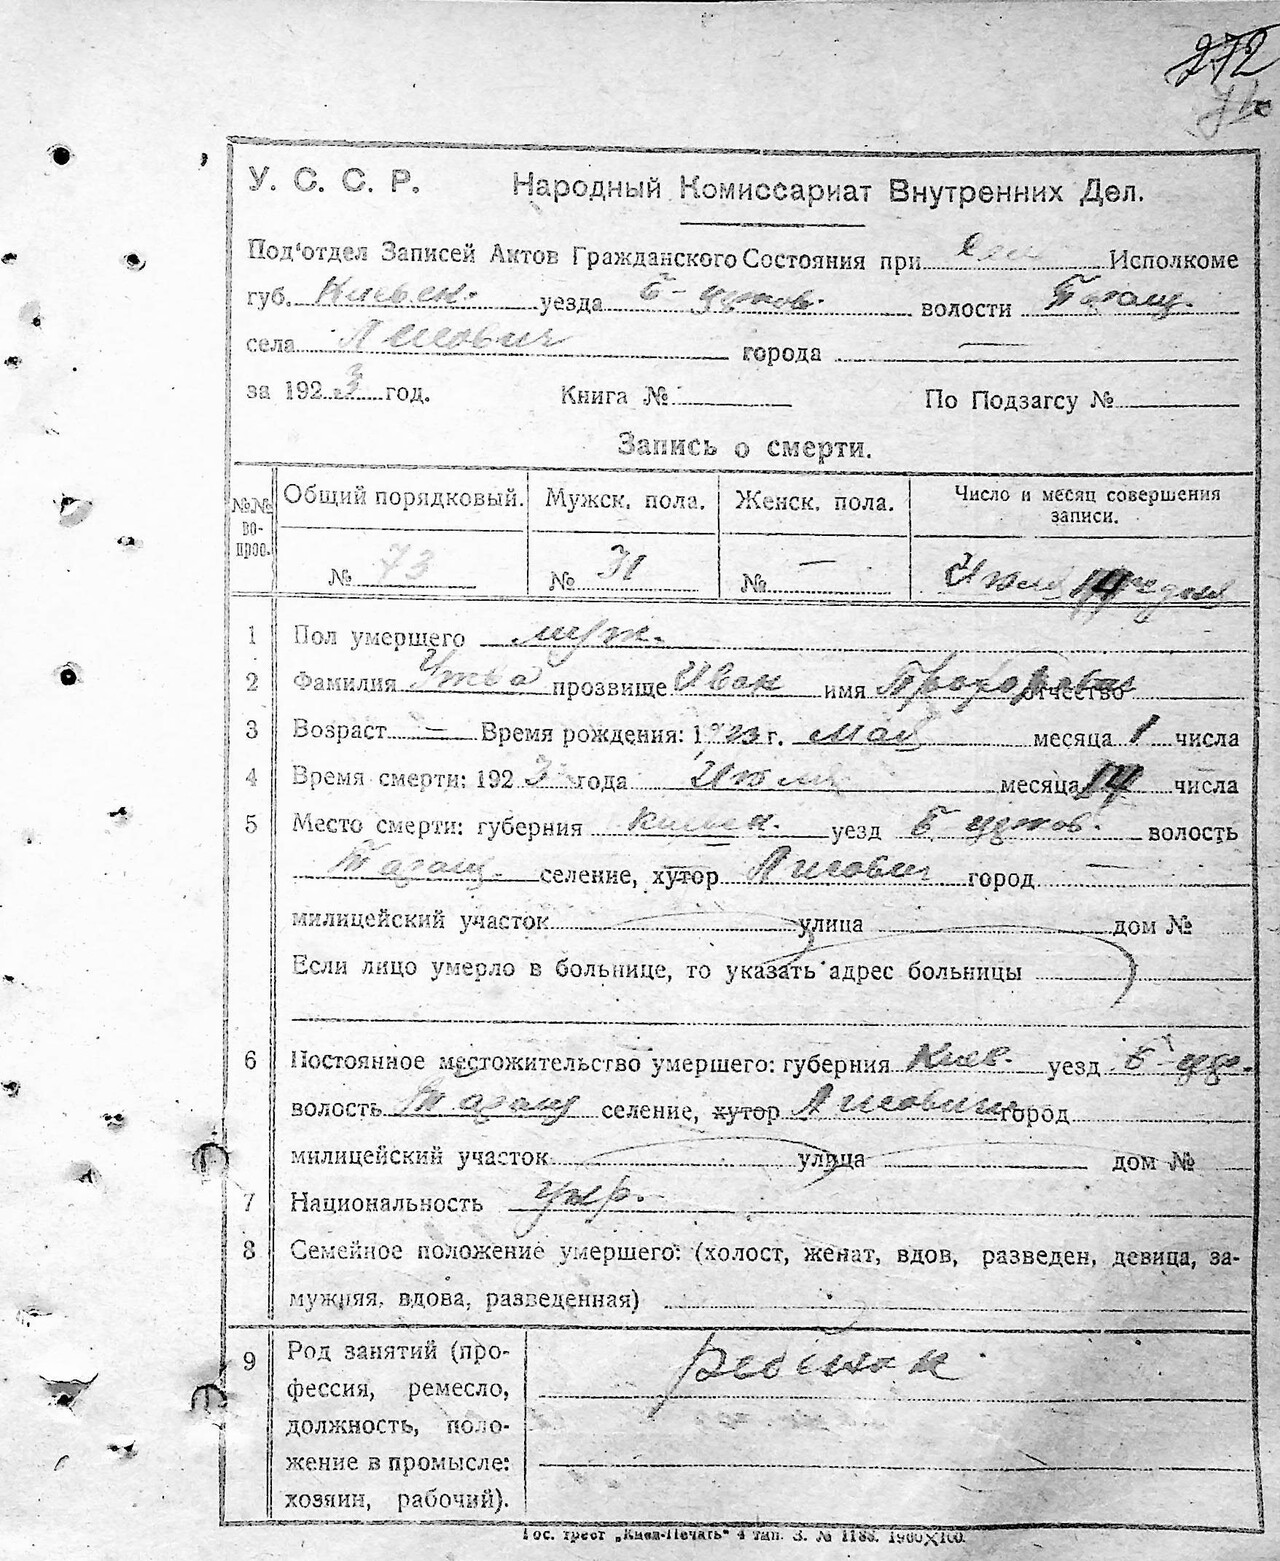 272
У. С. С. Р. Народный Комиссариат Внутренних Дел.
Под‘отдел Записей Актов Гражданского Состояния при Исполкоме
губ. Киевск. уезда Б-церков. волости Таращ.
села Лисович города —
за 1923 год. Книга № По Подзагсу №
Запись о смерти.
№№ вопрос. Общий порядковый. Мужск. пола. Женск. пола. Число и месяц совершения записи.
№ 73 № 31 № — Июля 14го дня
1 Пол умершего муж.
2 Фамилия прозвище Иван имя Прохорович отчество
3 Возраст — Время рождения: 1923 г. мая месяца 1 числа
4 Время смерти: 1923 года Июля месяца 14 числа
5 Место смерти: губерния Киевск. уезд Б церков. волость
Таращ. селение, хутор Лисович город —
милицейский участок улица дом №
Если лицо умерло в больнице, то указать адрес больницы
6 Постоянное местожительство умершего: губерния Киев. уезд Б-церк.
волость Таращ селение, хутор Лисович город
милицейский участок улица дом №
7 Национальность укр.
8 Семейное положение умершего: (холост, женат, вдов, разведен, девица, за-
мужняя, вдова, разведенная)
9 Род занятий (про- Ребёнок
фессия, ремесло,
должность, поло-
жение в промысле:
хозяин, рабочий).
Гос. трест „Киев-Печать“ 4 тип. З. № 1188.